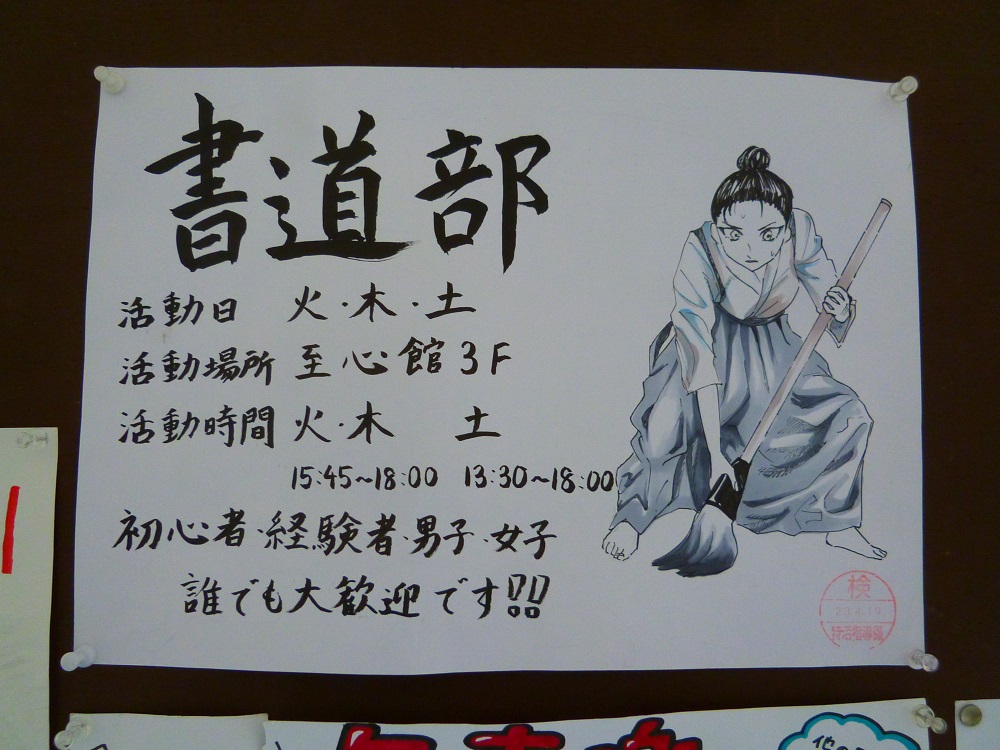 書道部
活動日 火・木・土
活動場所 至心館 3F
活動時間 火・木 土
15:45~18:00 13:30~18:00
初心者・経験者・男子・女子
誰でも大歓迎です!!
検
23.4.19